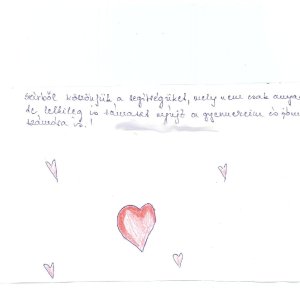 szívből köszönjük a segítségüket, mely nem csak anya
de lelkileg is támaszt nyújt a gyermekeim és
számára is!